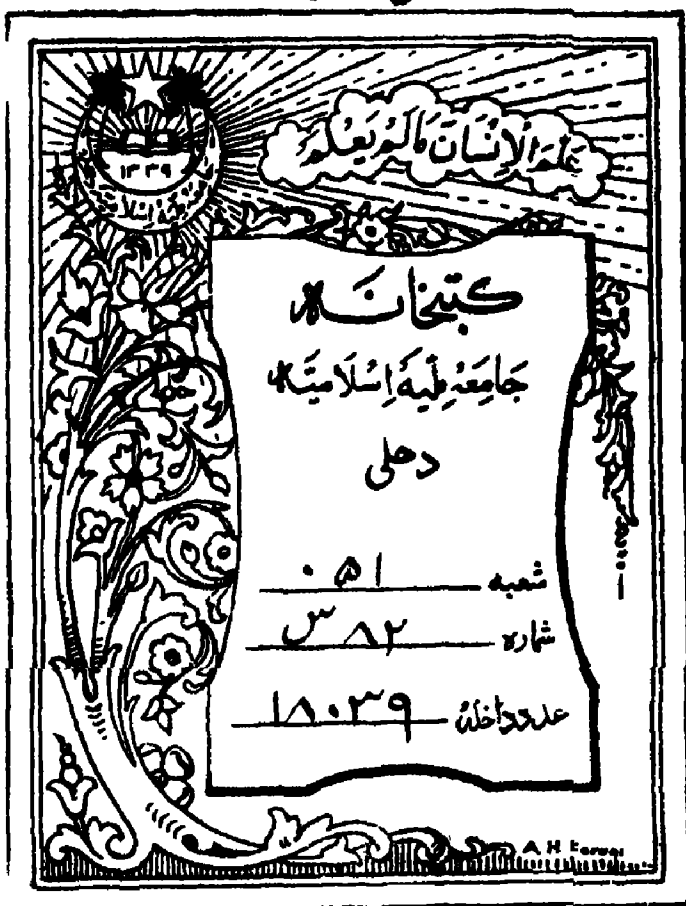 عَلَّمَ الْاِنْسَانَ مَا لَمْ يَعْلَمْ
۱۳۳۹
کتبخانہ
جامعہ ملیہ اسلامیہ
دهلی
شعبہ ۰۵۱
شمارہ ۸۲ س
عدد داخلہ ۱۸۰۳۹
A. H.